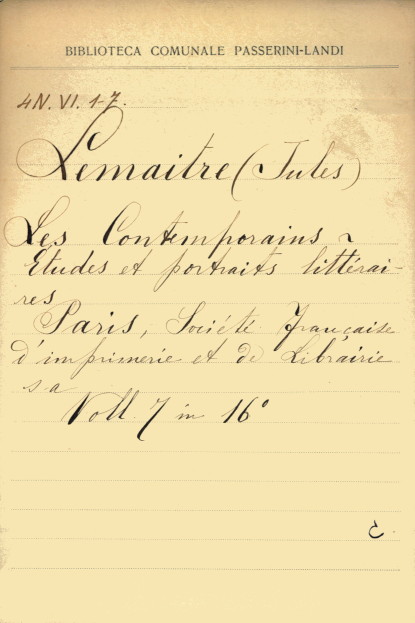 BIBLIOTECA COMUNALE PASSERINI-LANDI
4N. VI. 1-7.
Lemaitre (Jules)
Les Contemporains ~
Etudes et portraits littérai-
res
Paris, Société française
d'imprimerie et de Librairie
s a
Voll. 7 in 16°